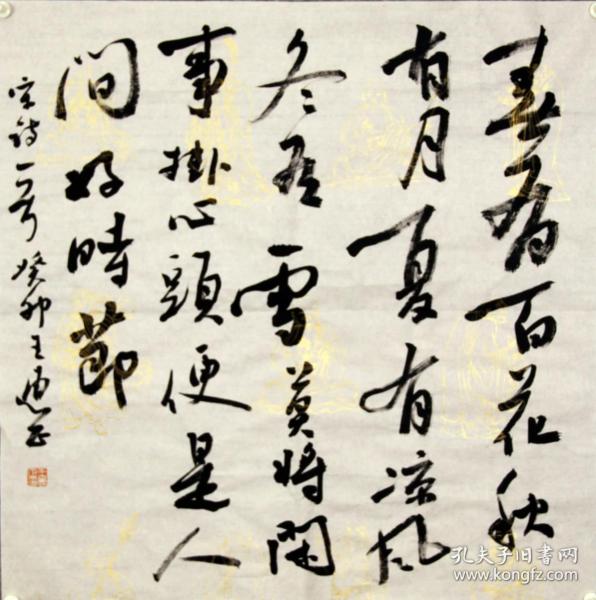 春有百花秋
有月夏有凉风
冬有雪莫將閑
事掛心頭便是人
間好時節
宋詩一首 癸卯王
孔夫子旧书网
www.kongfz.com